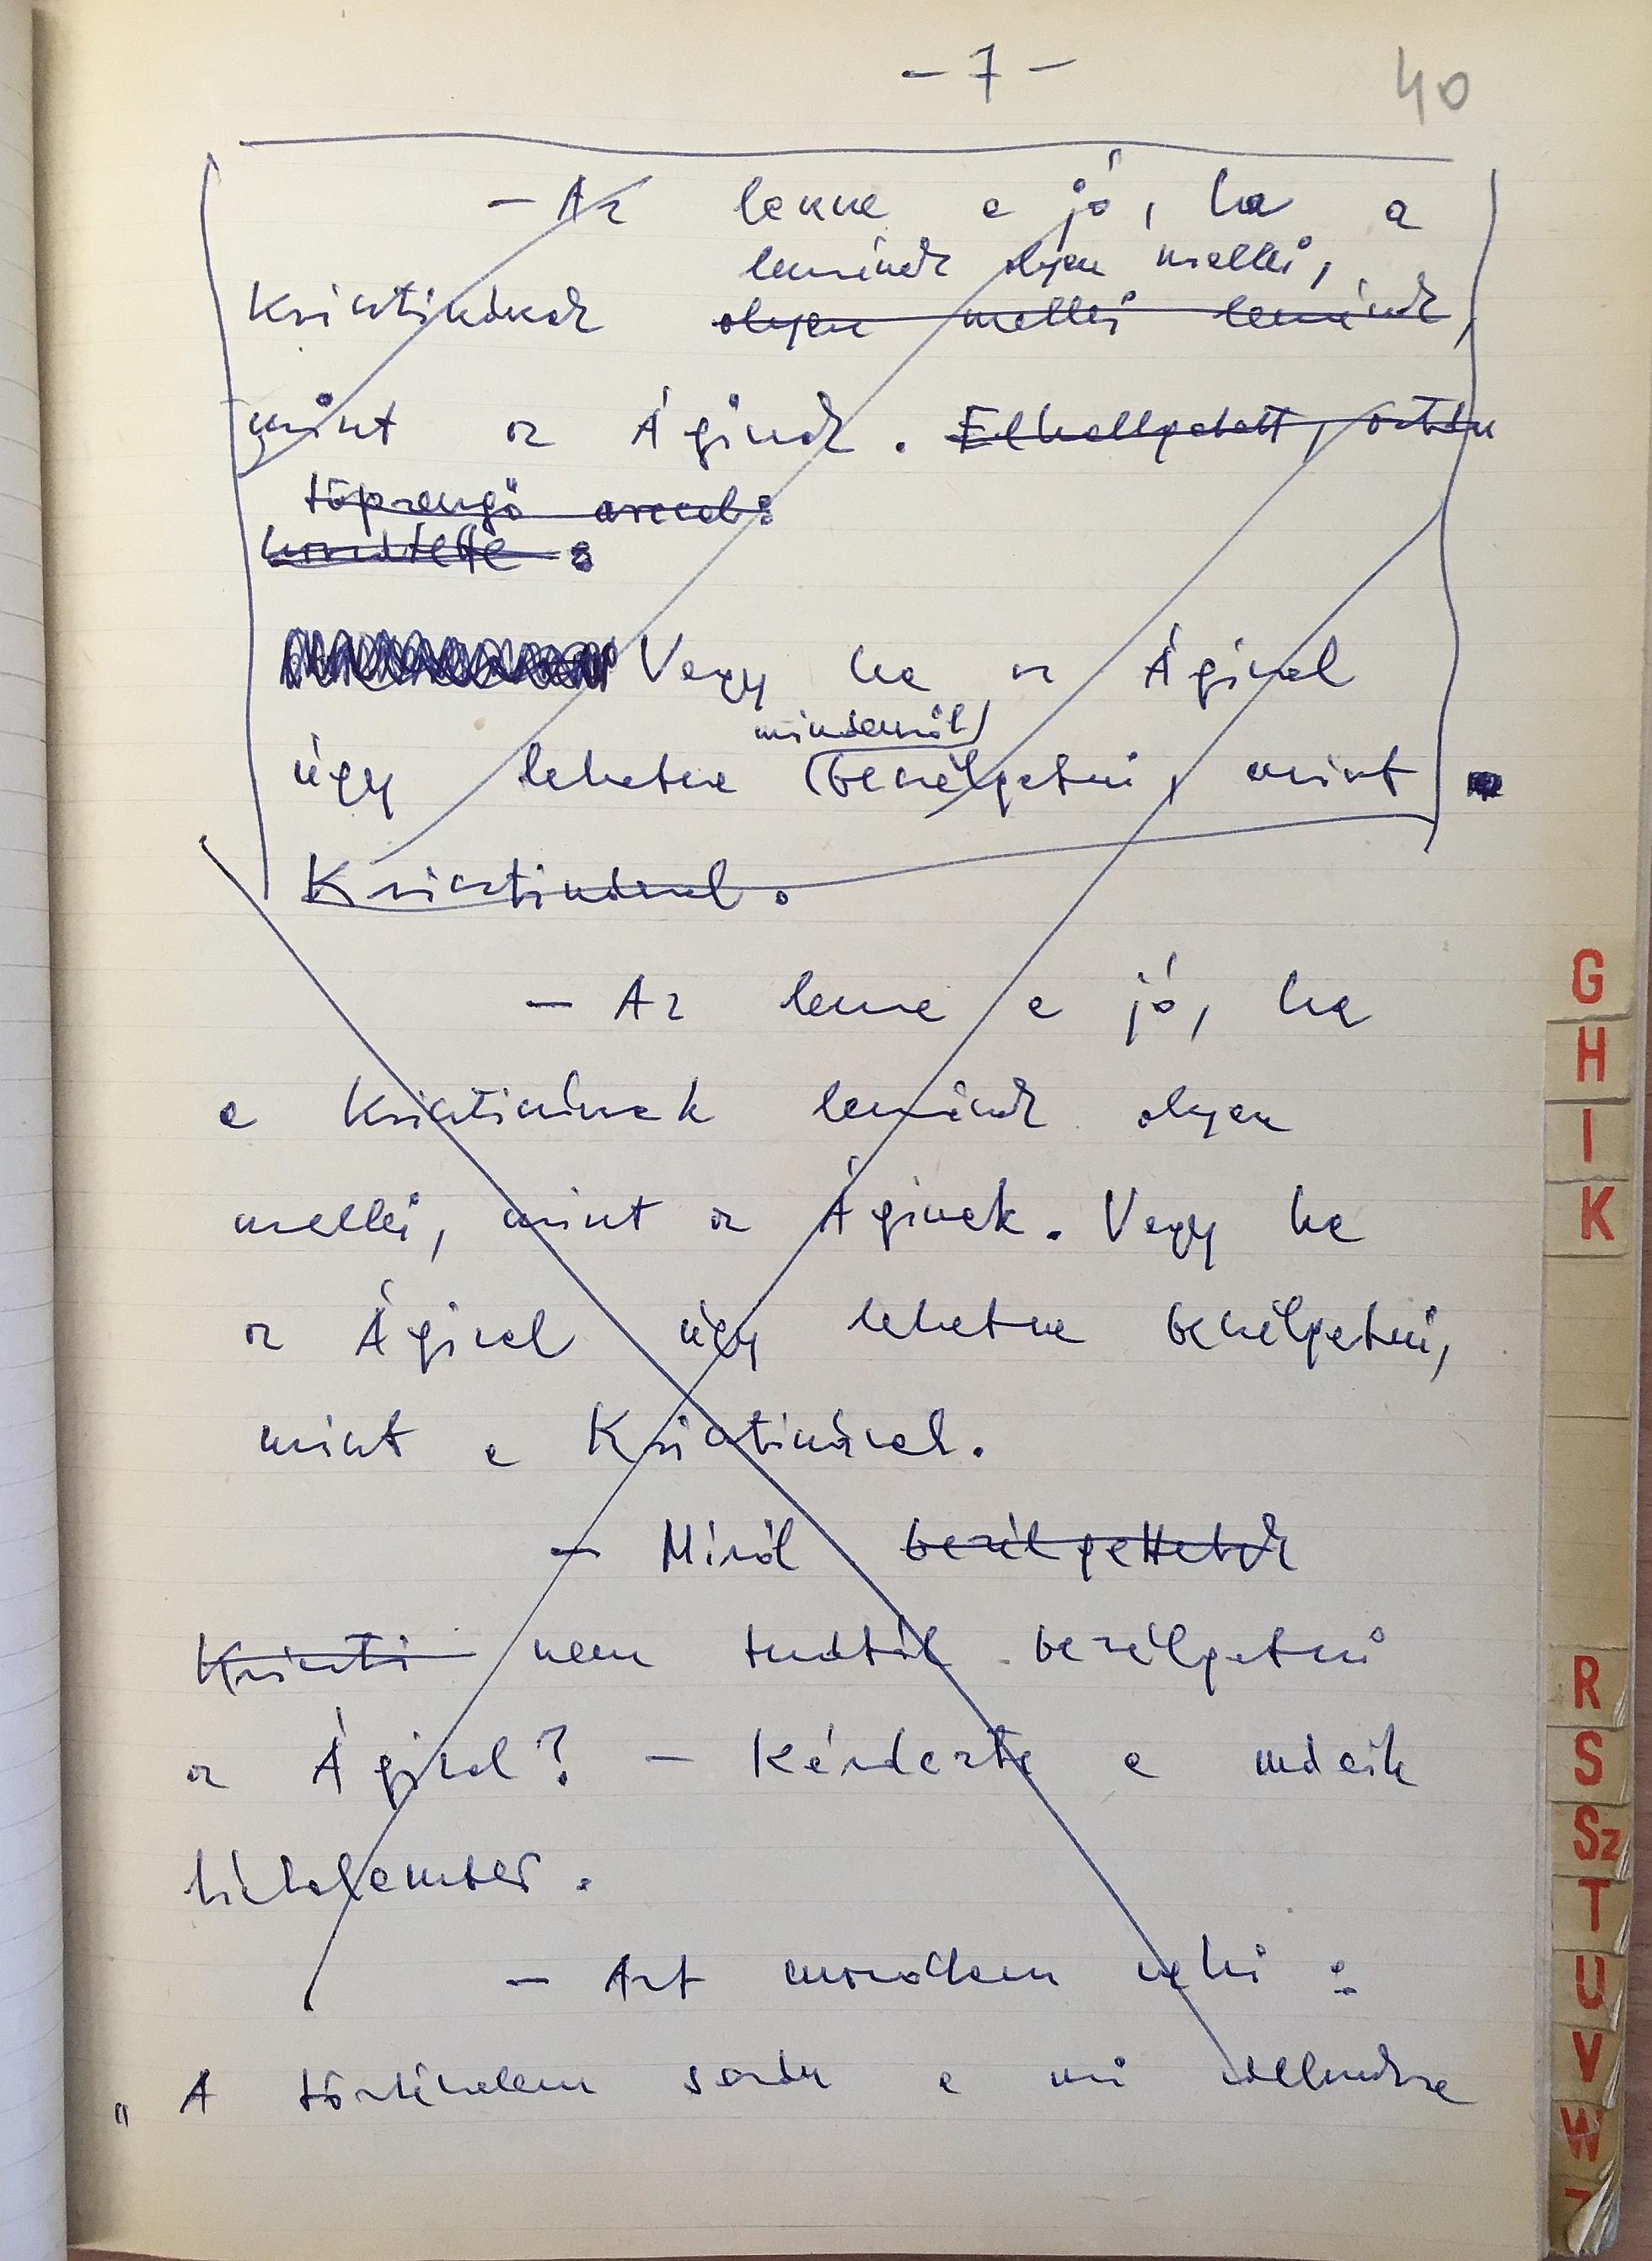 - 7 -
40
- Az lenne a jó, ha a
lennének olyan mellei,
Krisztinának olyan mellei lennének,
mint az Áginak. Elhallgatott, aztán
töprengő arccal:
hozzátette:
Vagy ha az Ágival
mindenről
úgy lehetne beszélgetni, mint
Krisztinával.
- Az lenne a jó, ha
a Krisztinának lennének olyan
mellei, mint az Áginak. Vagy ha
az Ágival úgy lehetne beszélgetni,
mint a Krisztinával.
- Miről beszélgettetek
Kriszti nem tudtál beszélgetni
az Ágival? - Kérdezte a másik
hátulember.
- Azt mondtam neki:
„A történelem során a mi
G
H
I
K
R
S
Sz
T
U
V
W
Z